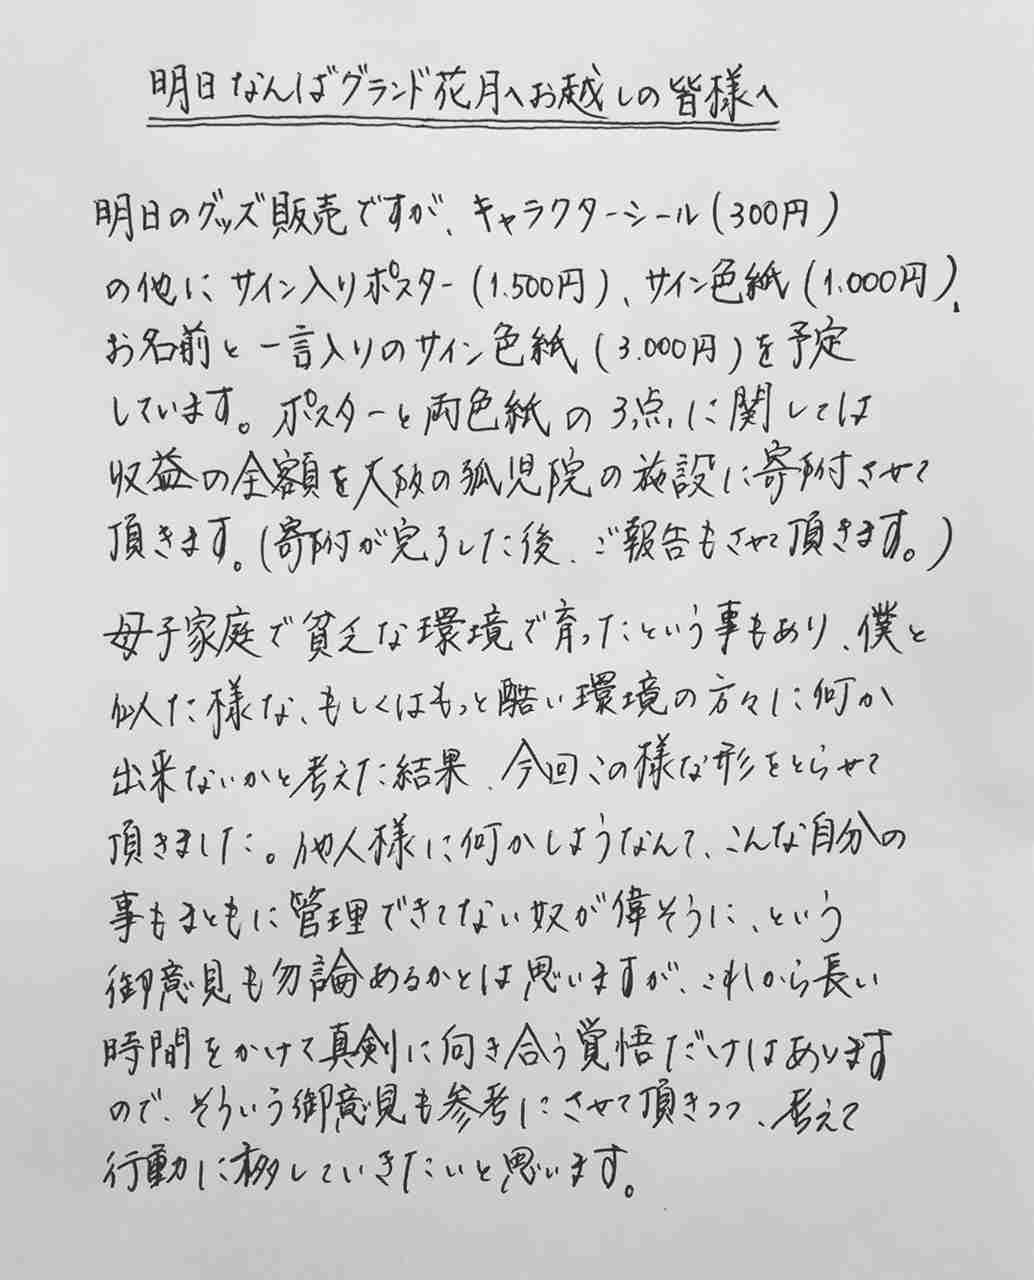 明日なんばグランド花月へお越しの皆様へ
明日のグッズ販売ですが、キャラクターシール(300円)
の他にサイン入りポスター(1.500円)、サイン色紙(1.000円)、
お名前と一言入りのサイン色紙(3.000円)を予定
しています。ポスターと両色紙の3点に関しては
収益の全額を大阪の孤児院の施設に寄附させて
頂きます。(寄附が完了した後、ご報告もさせて頂きます。)
母子家庭で貧乏な環境で育ったという事もあり、僕と
似た様な、もしくはもっと酷い環境の方々に何か
出来ないかと考えた結果、今回この様な形をとらせて
頂きました。他人様に何かしようなんて、こんな自分の
事もまともに管理できてない奴が偉そうに、という
御意見も勿論あるかとは思いますが、これから長い
時間をかけて真剣に向き合う覚悟だけはあります
ので、そういう御意見も参考にさせて頂きつつ、考えて
行動に移していきたいと思います。